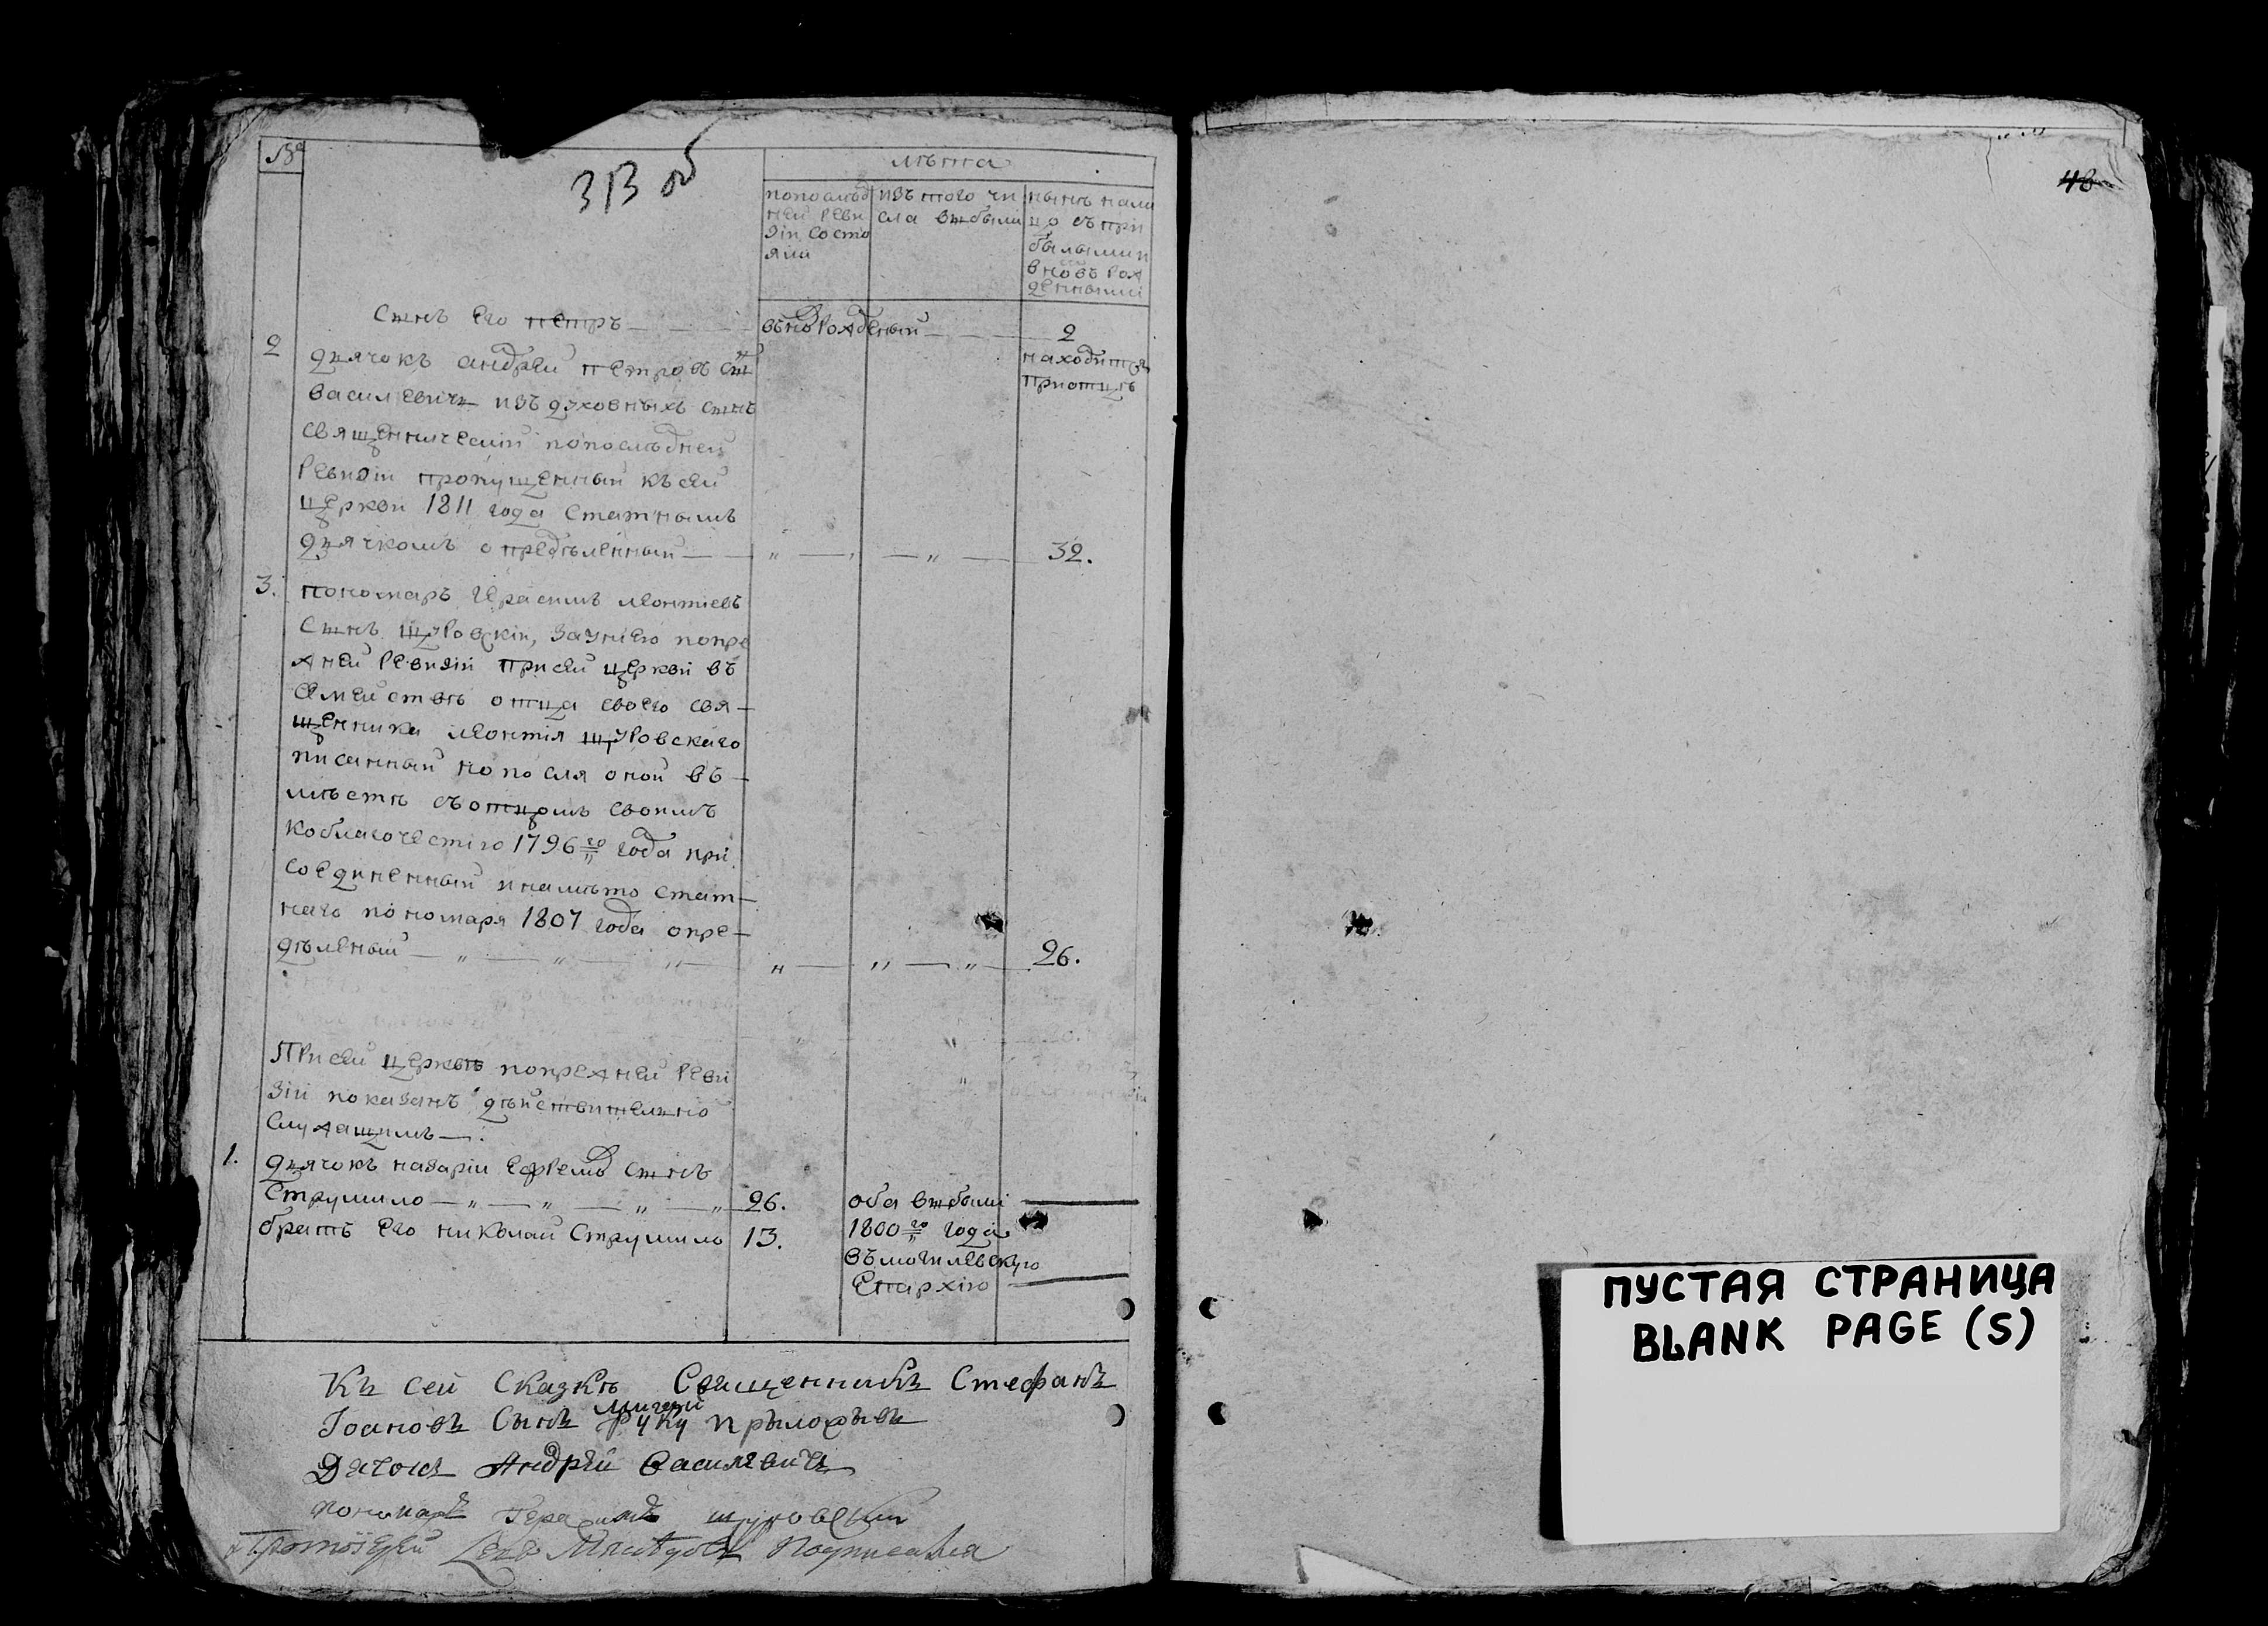 №
313 об
лѣта
попослѣд
ней реви
зіи состо
яли
изъ того чи
сла выбыли
нынѣ нали
цо съ при
былыми и
вновь рож
денными
сынъ его петръ
въновь рожденый
2
2
дьячокъ андрей петровъ сынъ
находится
приотцѣ
василевичь изъ духовныхъ сынъ
священническій попослѣдней
ревизіи пропущенный къ сей
церкви 1811 года статнымъ
дьячкомъ опредѣленный
32.
3.
пономаръ герасимъ леонтіевъ
сынъ щуровскій, заунѣю попре
жней ревизіи при сей церкви въ
семействѣ отца своего свя-
щенника леонтія щуровскаго
писанный нопосля оной въ-
мѣстѣ съ отцомъ своимъ
коблагочестію 1796го года при
соединенный инамѣто стат-
наго пономаря 1807 года опре-
дѣленый
26.
При сей церквѣ попрежней реви
зіи показанъ дѣйствително
служащимъ
1.
дьячокъ назарій ефремовъ сынъ
Струмило
26.
оба выбыли
братъ его николай Струмило
13.
1800го года
въ могилевскую
Епархію
Къ сей сказкѣ Священникъ Стефанъ
Іоановъ Сынъ руку прыложывъ
Дячокъ Андрей Василевичъ
пономаръ Герасимъ щуровскій
Протоіерей подписался
48
ПУСТАЯ СТРАНИЦА
BLANK PAGE (S)